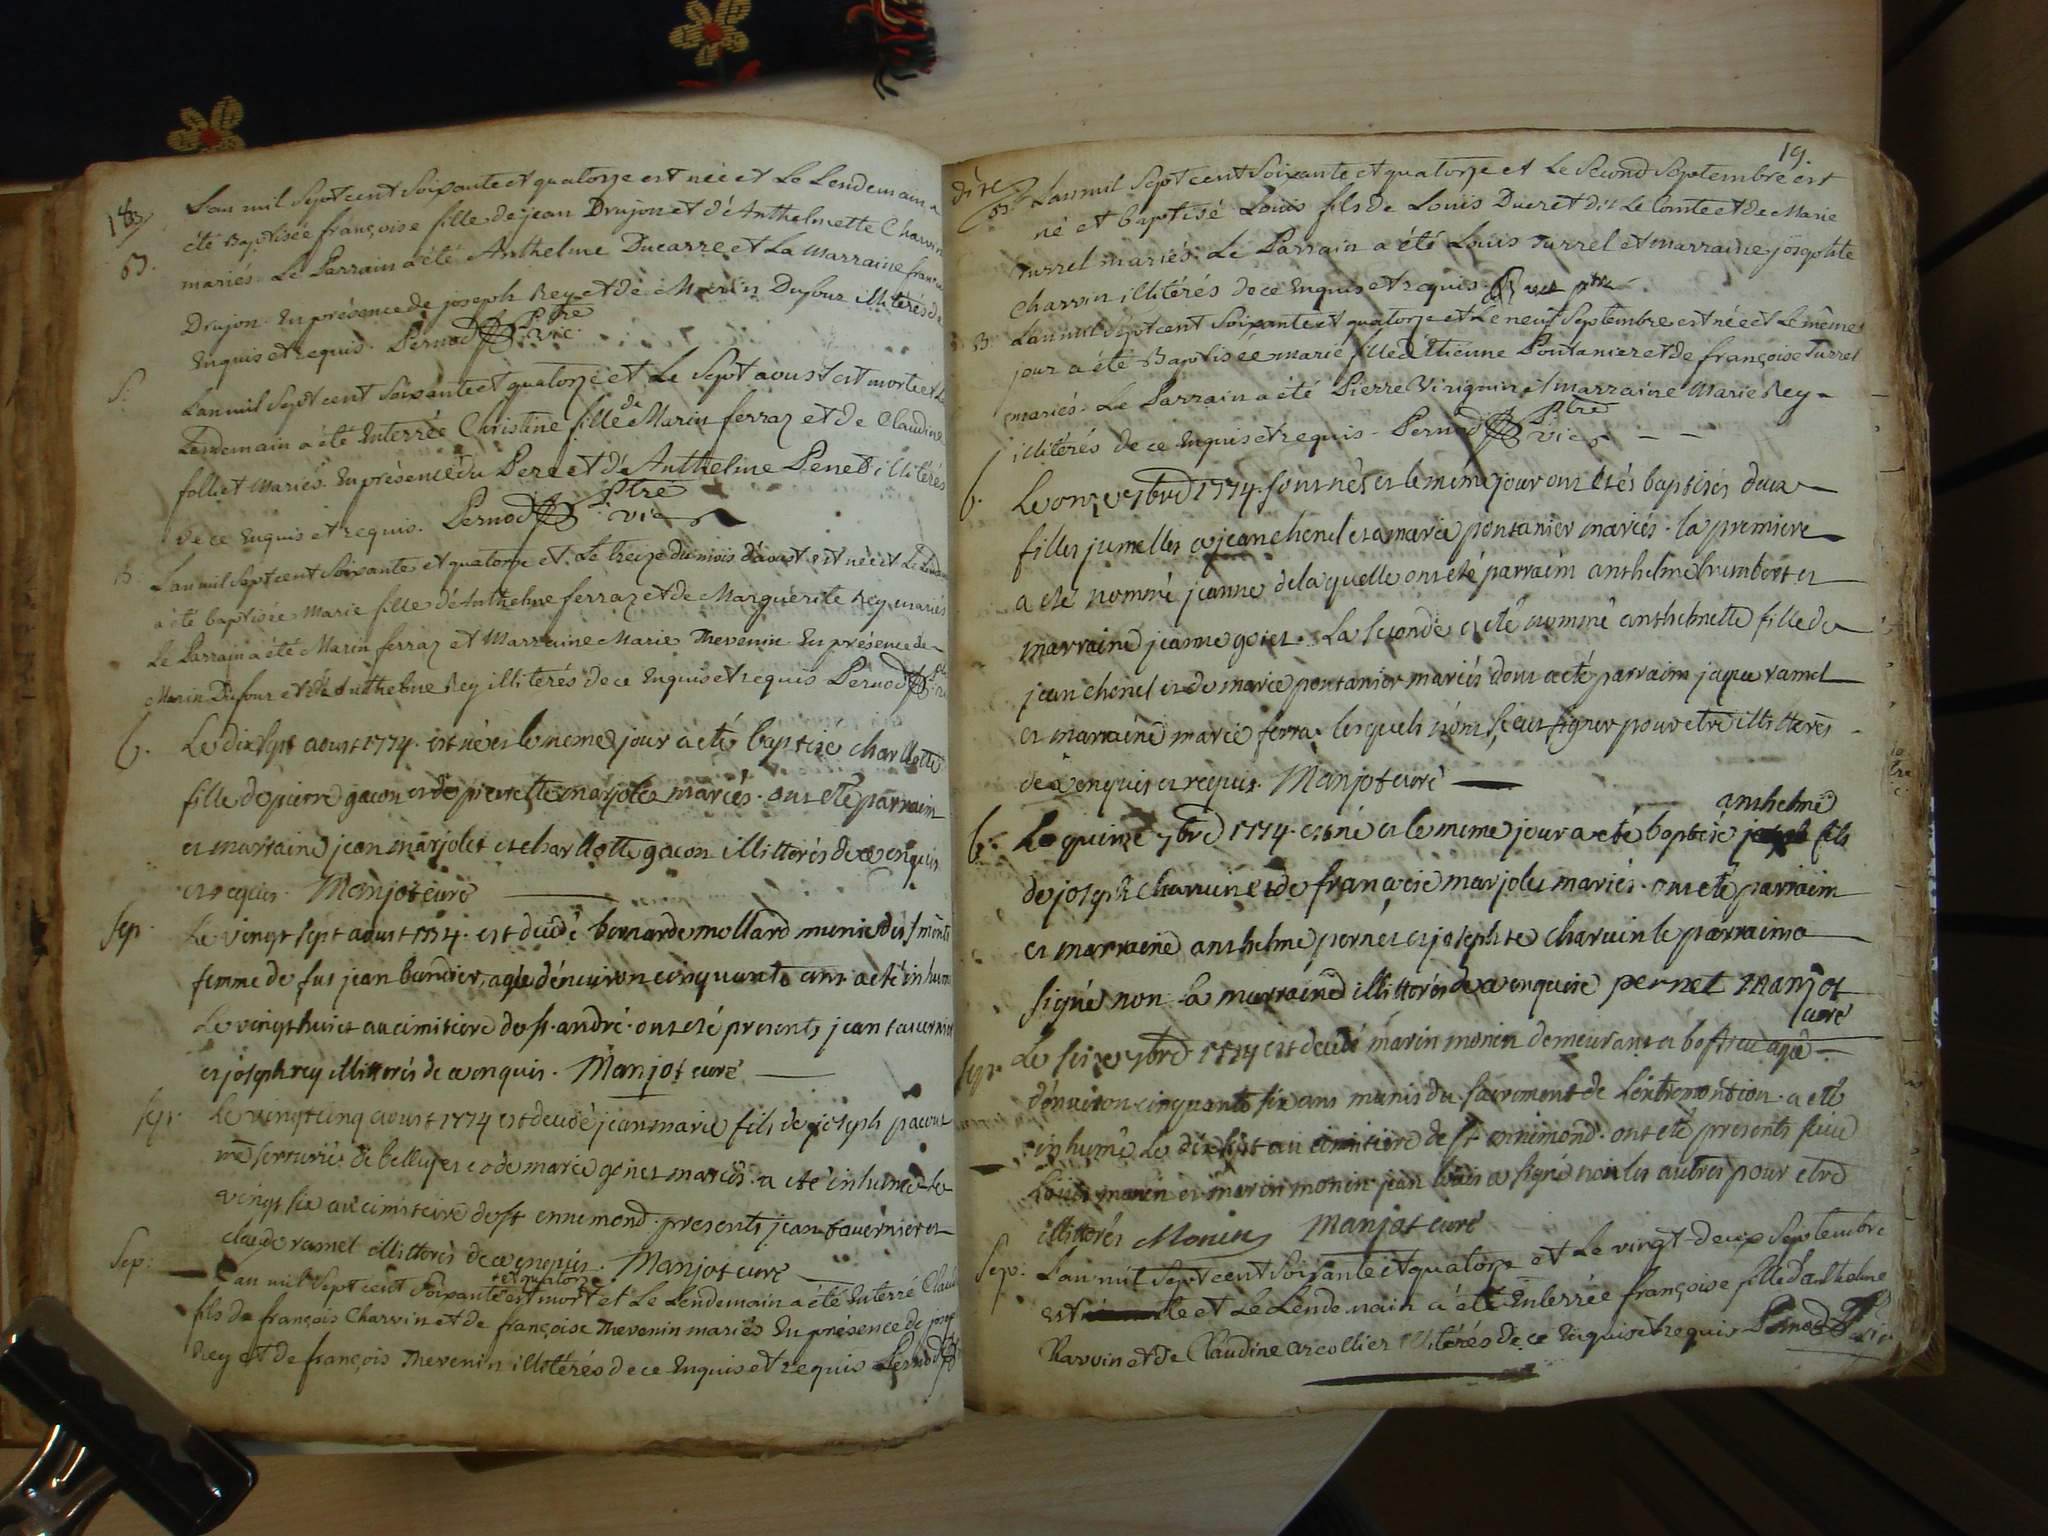 18
L'an mil Sept cent Soixante et quatorze est née et Le Lendemain a
B. été Baptisée françoise fille de jean Drujon et d'Anthelmette Charvin
mariés. Le Parrain a été Anthelme Ducarre et La Marraine
Drujon. En présence de joseph Rey et de Marin Dufour illitérés de
Enquis et requis. Pernod Ptre vic.
S. L'an mil Sept cent Soixante et quatorze et Le Sept aoust est morte et Le
Lendemain a été Enterrée Christine fille de Marin ferraz et de Claudine
folliet Mariés. En présence du Pere et d'Anthelme Penet illitérés
de ce Enquis et requis. Pernod Ptre vic
B. L'an mil Sept cent Soixante et quatorze et Le treize du mois d'aoust est née et Le
a été baptisée Marie fille d'Anthelme ferraz et de Marguerite Rey mariés
Le Parrain a été Marin ferraz et Marraine Marie Thevenin En présence de
Marin Dufour et d'Anthelme Rey illitérés de ce Enquis et requis Pernod
b. Le dix sept aoust 1774. est né et le meme jour a eté baptisé charllotte
fille de pierre gacon et de pierrette marjolet mariés. ont eté parrain
et marraine jean marjolet et charllotte gacon illitterés de ce enquis
et requis. Manjot curé
Sep. Le vingt sept aoust 1774. est decedé bernarde mollard munie des
femme de fut jean bandier, agée d'environ cinquante ans a eté
Le vingt huict au cimitiere de st. andré. ont eté presents jean tavernier
et joseph rey illitterés de ce enquis. Manjot curé
Sep. Le vingt cinq aoust 1774 est decedé jean marie fils de joseph pacout
me serrurié de belley et de marie goinet mariés. a eté inhumé le
vingt six au cimitiere de st ennemond. presents jean tavernier et
claude ramel illitterés de ce enquis. Manjot curé
et quatorze
Sep: L'an mil Sept cent Soixante est mort et Le Lendemain a été Enterré
fils de françois Charvin et de françoise Thevenin mariés En présence de
Rey et de françois Thevenin illitérés de ce Enquis et requis Pernod
19.
B. L'an mil Sept cent Soixante et quatorze et Le Second Septembre est
né et baptisé Louis fils de Louis Ducret dit Le Comte et de Marie
Turrel mariés. Le Parrain a été Louis Turrel et marraine
Charvin illitérés de ce Enquis et requis.
B. L'an mil Sept cent Soixante et quatorze et Le neuf Septembre est née et Le même
jour a été Baptisée marie fille d'Etienne Pontanier et de françoise Turrel
mariés. Le Parrain a été Pierre Virignin et marraine Marie Rey
illitérés de ce Enquis et requis. Pernod Ptre vic
b. Le onze 7bre 1774. sont nés et le même jour ont etés baptisés deux
filles jumelles a jean chenel et a marie pontanier mariés. la premiere
a eté nommé jeanne de la quelle ont eté parraim anthelme humbert et
marraine jeanne goiet. La seconde a eté nommé anthelmette fille de
jean chenel et de marie pontanier mariés dont a eté parraim jaque ramel
et marraine marie ferra lesquels n'ont sçeut signer pour etre illitterés
de ce enquis et requis. Manjot curé
anthelme
b. Le quinze 7bre 1774. est né et le meme jour a eté baptisé fils
de joseph charvin et de françoise marjolet mariés. ont eté parraim
et marraine anthelme pernet et josephte charvin le parraim a
signé non la marraine illitterés de ce enquise pernet Manjot
curé
Sep. Le seize 7bre 1774 est decedé marin monin demeurant a agé
d'environ cinquante six ans munis du sacrement de L'extremontion. a eté
inhumé Le dix sept au cimitiere de st ennemond. ont eté presents
Louis monin et marin monin jean Louis a signé non les autres pour etre
illitterés Monin Manjot curé
Sep. L'an mil Sept cent Soixante et quatorze et Le vingt-deux Septembre
est et Le Lendemain a été Enterrée françoise fille d'anthelme
Ravoin et de Claudine arcollier illitérés de ce Enquis et requis Pernod